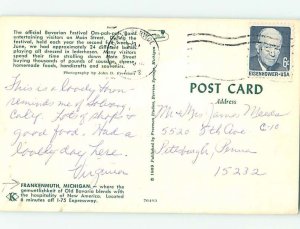 The official Bavarian Festival Om-pah-pah band
entertaining visitors on Main Street. During the
festival, held each year the second full week in
June, we had approximately 24 different bands,
playing all dressed in lederhosen. Many visitors
spend their time strolling down Main Street
enjoying thousands of pounds of sausage, cheese,
homemade foods, handicrafts and novelties.
Photography by John
EISENHOWER·USA
POST CARD
Address
This is a lovely town
reminds me of Solvang,
Calif. Lots of shops &
good food. Had a
lovely day here.
Virginia
Mr & Mrs James
5520 5th Ave C-10
Pittsburgh, Penna
15232
FRANKENMUTH, MICHIGAN, — where
the gemuetlichkeit of Old Bavaria blends with
the hospitality of New America. Located
6 minutes off I-75 Expressway.